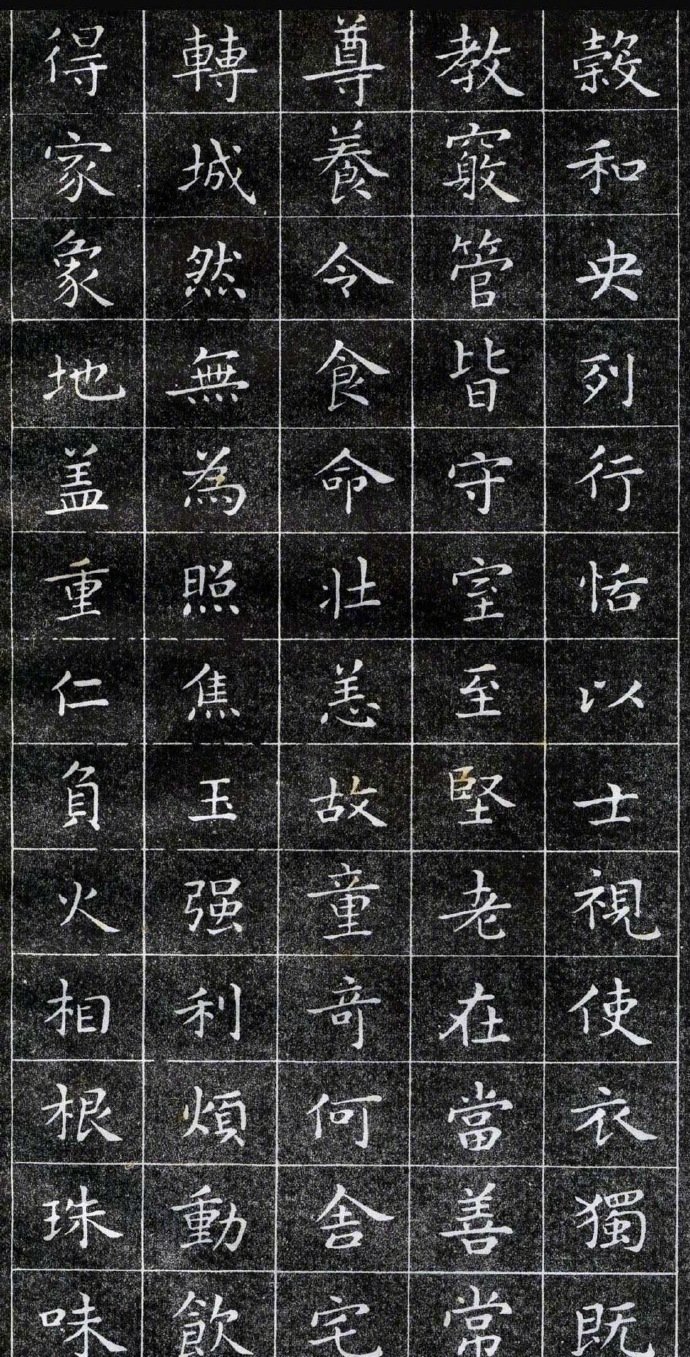 穀和央列行恬以士視使衣獨既
教窮管皆守室至堅老在當善常
尊養令食命壯恙故童奇何舍宅
轉城然無為照焦玉强利煩動飲
得家象地盖重仁負火相根珠味